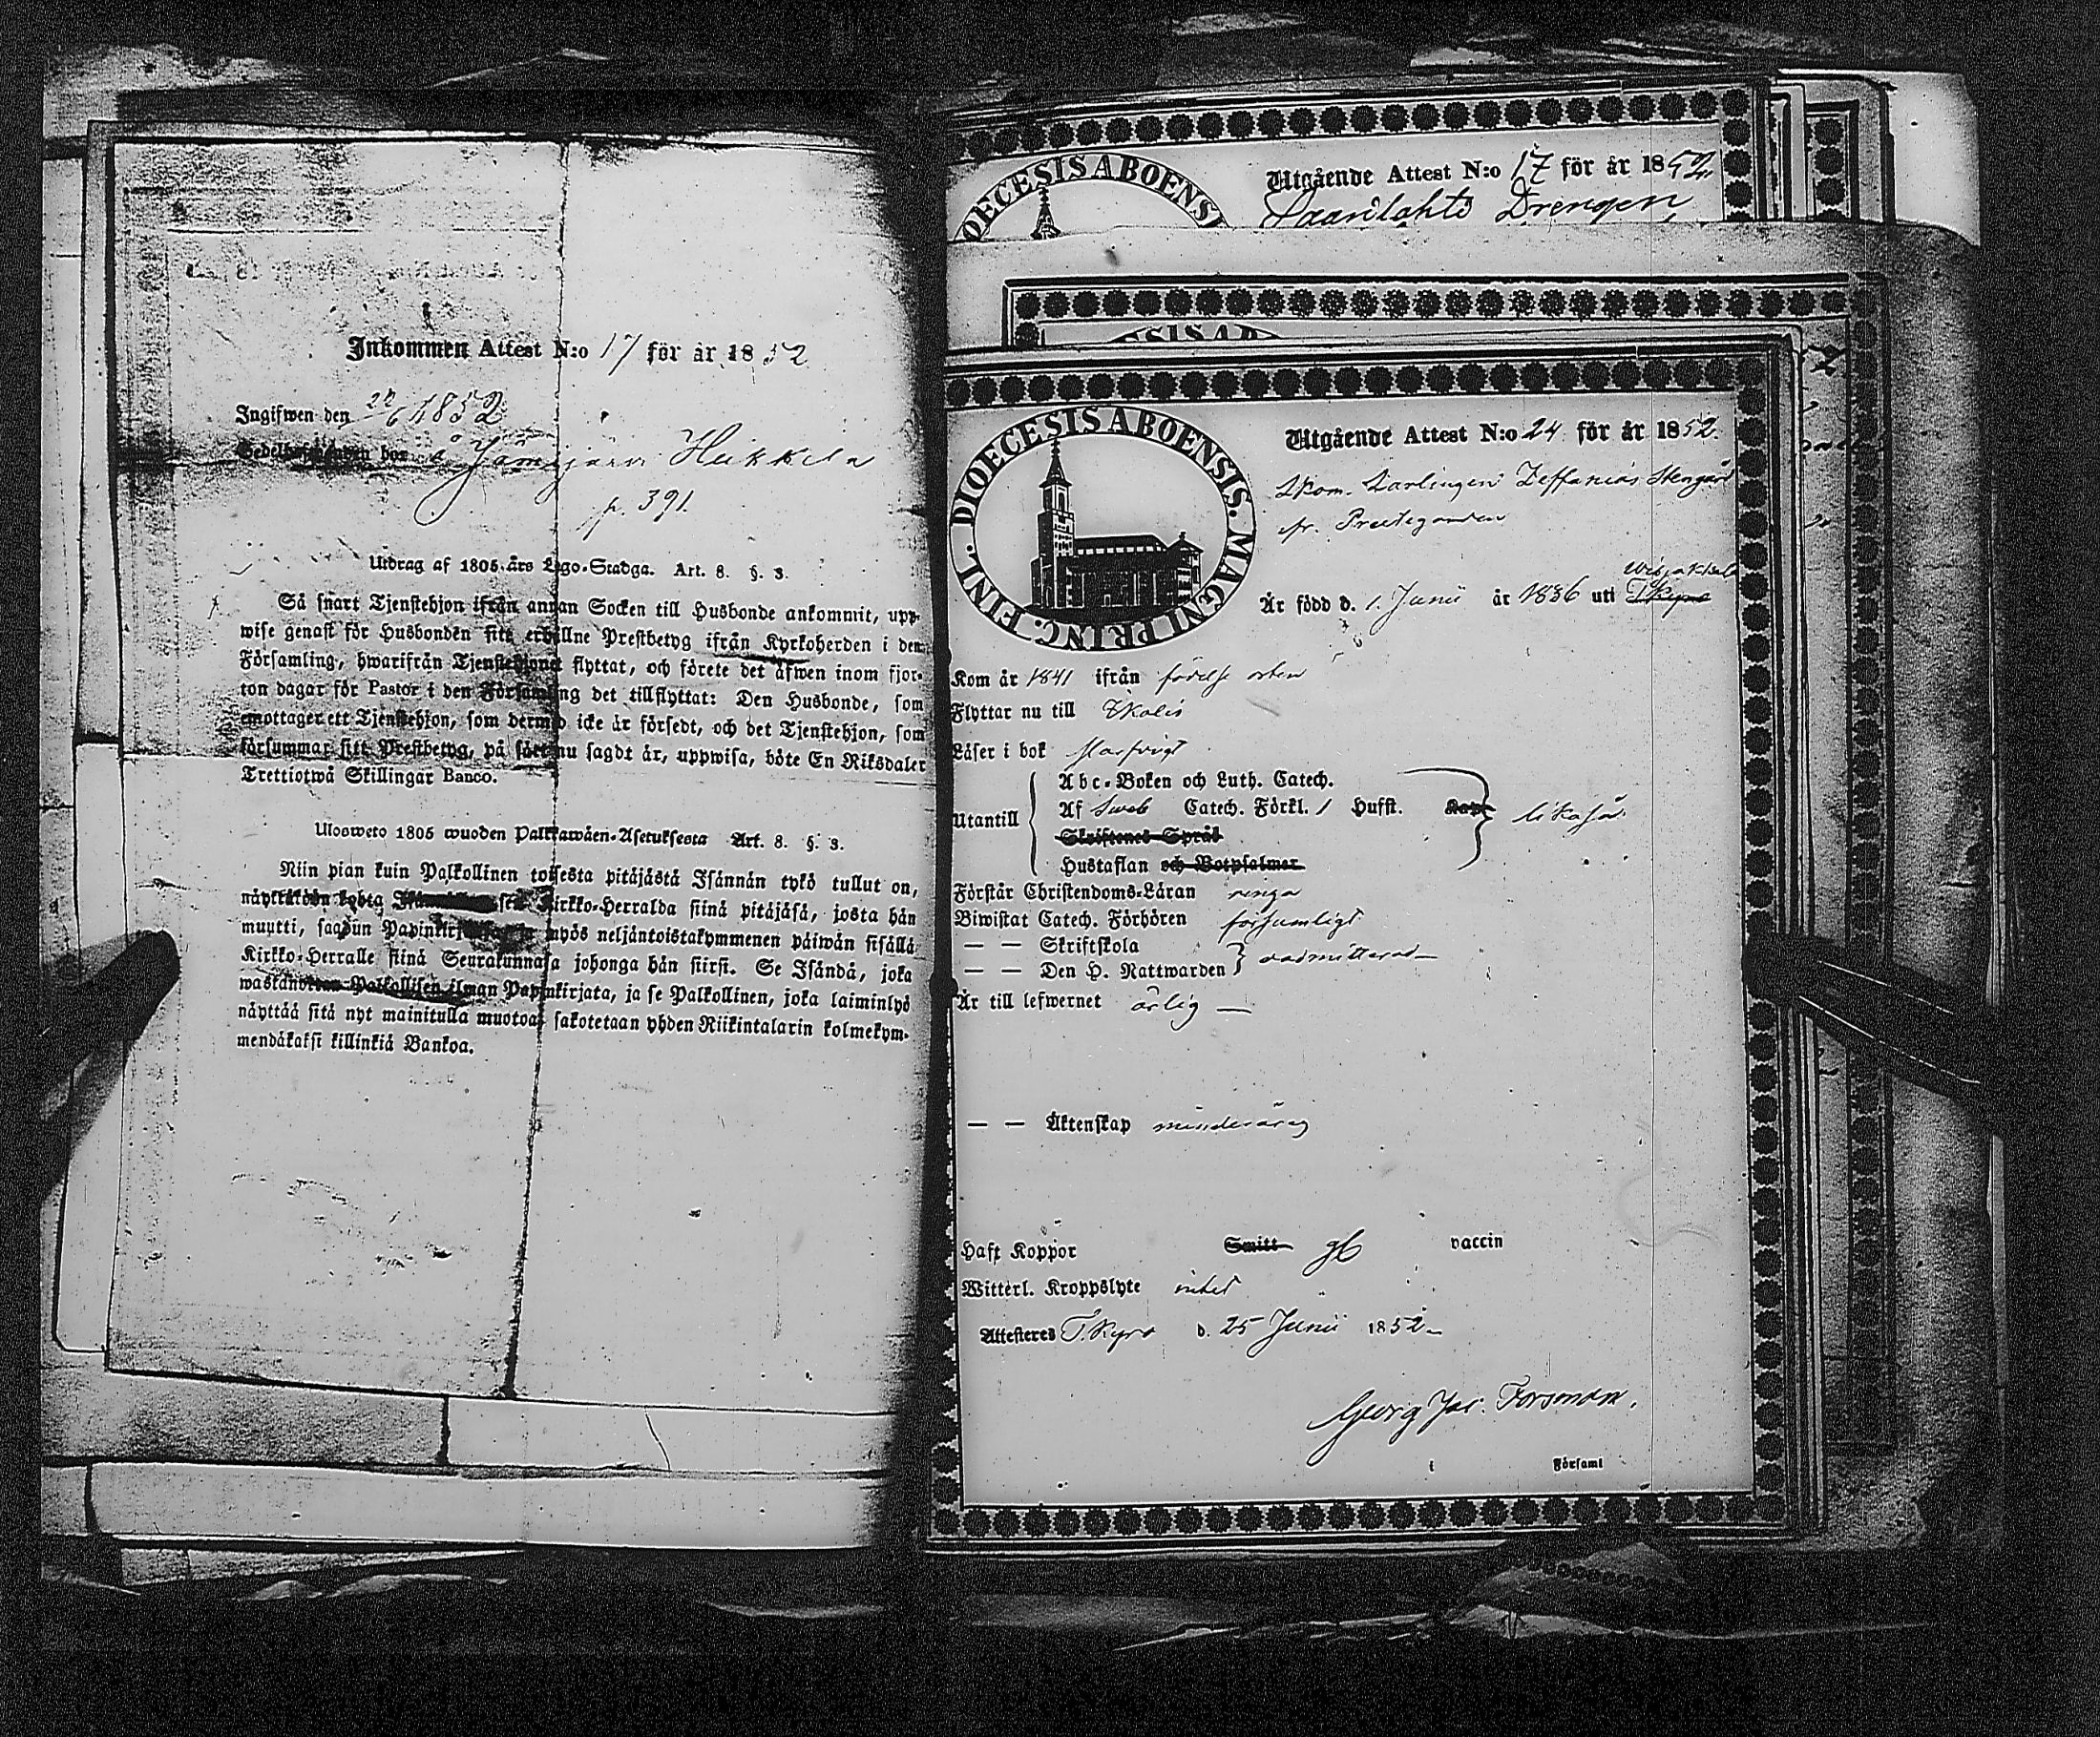 Inkommen Attest N:o 17 för år 1852
Ingifwen den 28/6 1852
Sedelhafwanden bor å Jämijärvi Heikkilä
p. 391.
Utdrag af 1805 års Lego-Stadga. Art. 8. §. 3.
Så snart Tjenstehjon ifrån annan Socken till Husbonde ankommit, upp-
wise genast för Husbonden sitt erhållne Prestbetyg ifrån Kyrkoherden i den
Församling, hwarifrån Tjenstehjonet flyttat, och förete det äfwen inom fjor-
ton dagar för Pastor i den Församling det tillflyttat: Den Husbonde, som
emottager ett Tjenstehjon, som dermed icke är försedt, och det Tjenstehjon, som
försummar sitt Prestbetyg, på sätt nu sagdt är, uppwisa, böte En Riksdaler
Trettiotwå Skillingar Banco.
Ulosweto 1805 wuoden Palkkawäen-Asetuksesta Art. 8. §. 3.
Niin pian kuin Palkollinen toisesta pitäjästä Isännän tykö tullut on,
näyttäköön kohta Kirkko-Herralda siinä pitäjäsä, josta hän
muutti, saadun Papinkirjansa ja myös neljäntoistakymmenen päiwän sisällä
Kirkko-Herralle siinä Seurakunnasa johonga hän siirsi. Se Isändä, joka
wastanottaa Palkollisen ilman Papinkirjata, ja se Palkollinen, joka laiminlyö
näyttää sitä nyt mainitulla muotoa, sakotetaan yhden Riikintalarin kolmekym-
mendäkaksi killinkiä Bankoa.
DIOECESIS ABOENSI
Utgående Attest N:o 17 för år 1852.
Saarilahti Drengen
ESIS AB
DIOECESIS ABOENSIS. MAGNI PRINC. FINL.
Utgående Attest N:o 24 för år 1852.
Skom. Lärlingen Zeffanias Stengård
fr. Prestegården
Är född d. 1. Junii år 1836 uti T.Kyro
Kom år 1841 ifrån födelse orten
Flyttar nu till Ikalis
Läser i bok Norfvigt
Utantill
Abc-Boken och Luth. Catech.
Af Sveb Catech. Förkl. 1 Hufst. Kap likaså
Skriftenes Språk
Hustaflan och Botpsalmer
Förstår Christendoms-Läran ringa
Biwistat Catech. Förhören försumligt
— — Skriftskola
— — Den H. Nattwarden oadmitterad —
Är till lefwernet ärlig —
— — Äktenskap minderårig
Haft Koppor Smitt gb vaccin
Witterl. Kroppslyte intet
Attesteres T.Kyro d. 25 Junii 1852 –
Georg Jac. Forsman.
i Församl